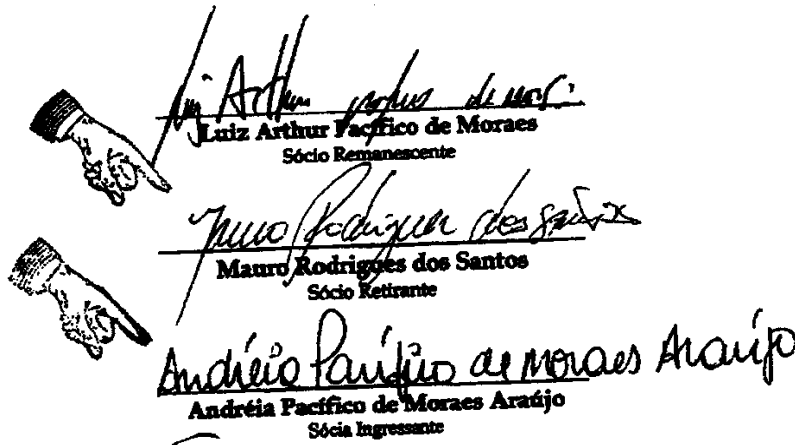 Luiz Arthur Pacífico de Moraes
Luiz Arthur Pacífico de Moraes
Sócio Remanescente
Mauro Rodrigues dos Santos
Mauro Rodrigues dos Santos
Sócio Retirante
Andréia Pacífico de Moraes Araújo
Andréia Pacífico de Moraes Araújo
Sócia Ingressante